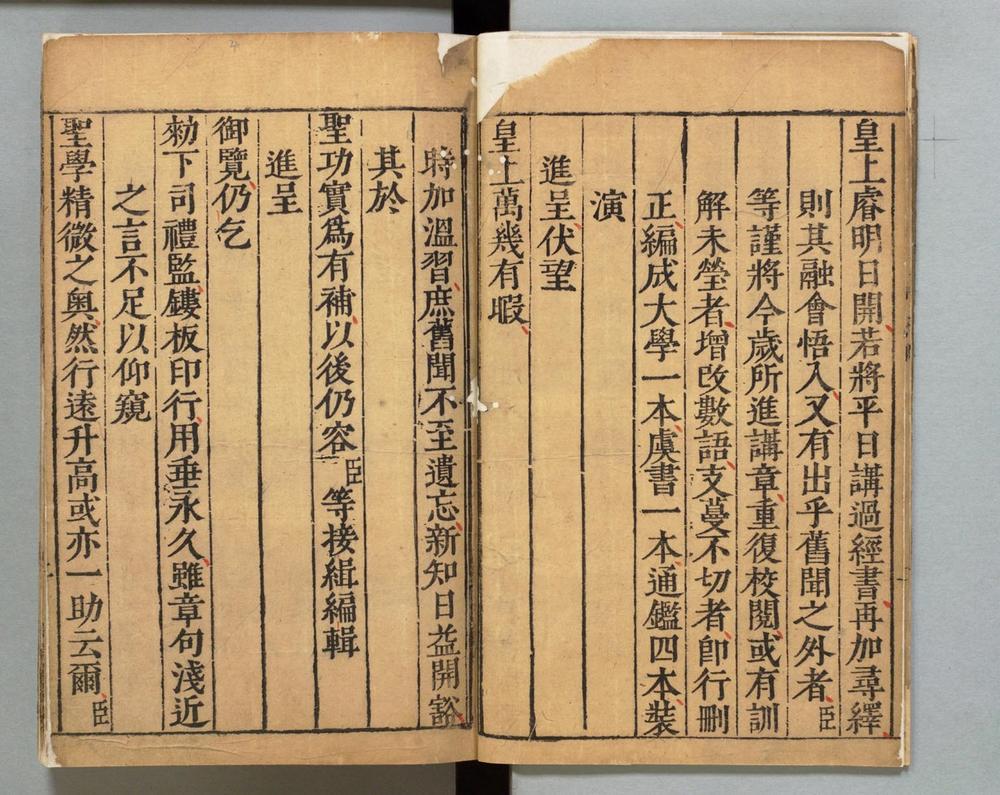 皇上睿明日開若將平日講過經書再加尋繹
則其融會悟入又有出乎舊聞之外者臣
等謹將今歲所進講章重復校閱或有訓
解未瑩者增改數語支蔓不切者即行刪
正編成大學一本虞書一本通鑑四本裝
演
進呈伏望
皇上萬幾有暇
時加溫習庶舊聞不至遺忘新知日益開豁
其於
聖功實爲有補以後仍容臣等接緝編輯
進呈
御覽仍乞
勑下司禮監鏤板印行用垂永久雖章句淺近
之言不足以仰窺
聖學精微之奥然行遠升高或亦一助云爾臣